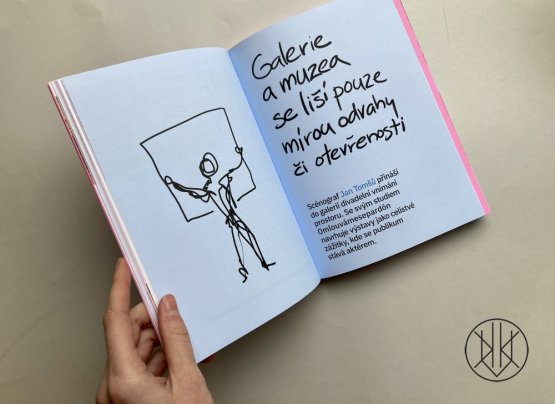 Galerie
a muzea
se liší pouze
mírou odvahy
či otevřenosti
Scénograf Jan Tomšů přináší
do galerií divadelní vnímání
prostoru. Se svým studiem
Omlouvámesepardón
navrhuje výstavy jako celistvé
zážitky, kde se publikum
stává aktérem.